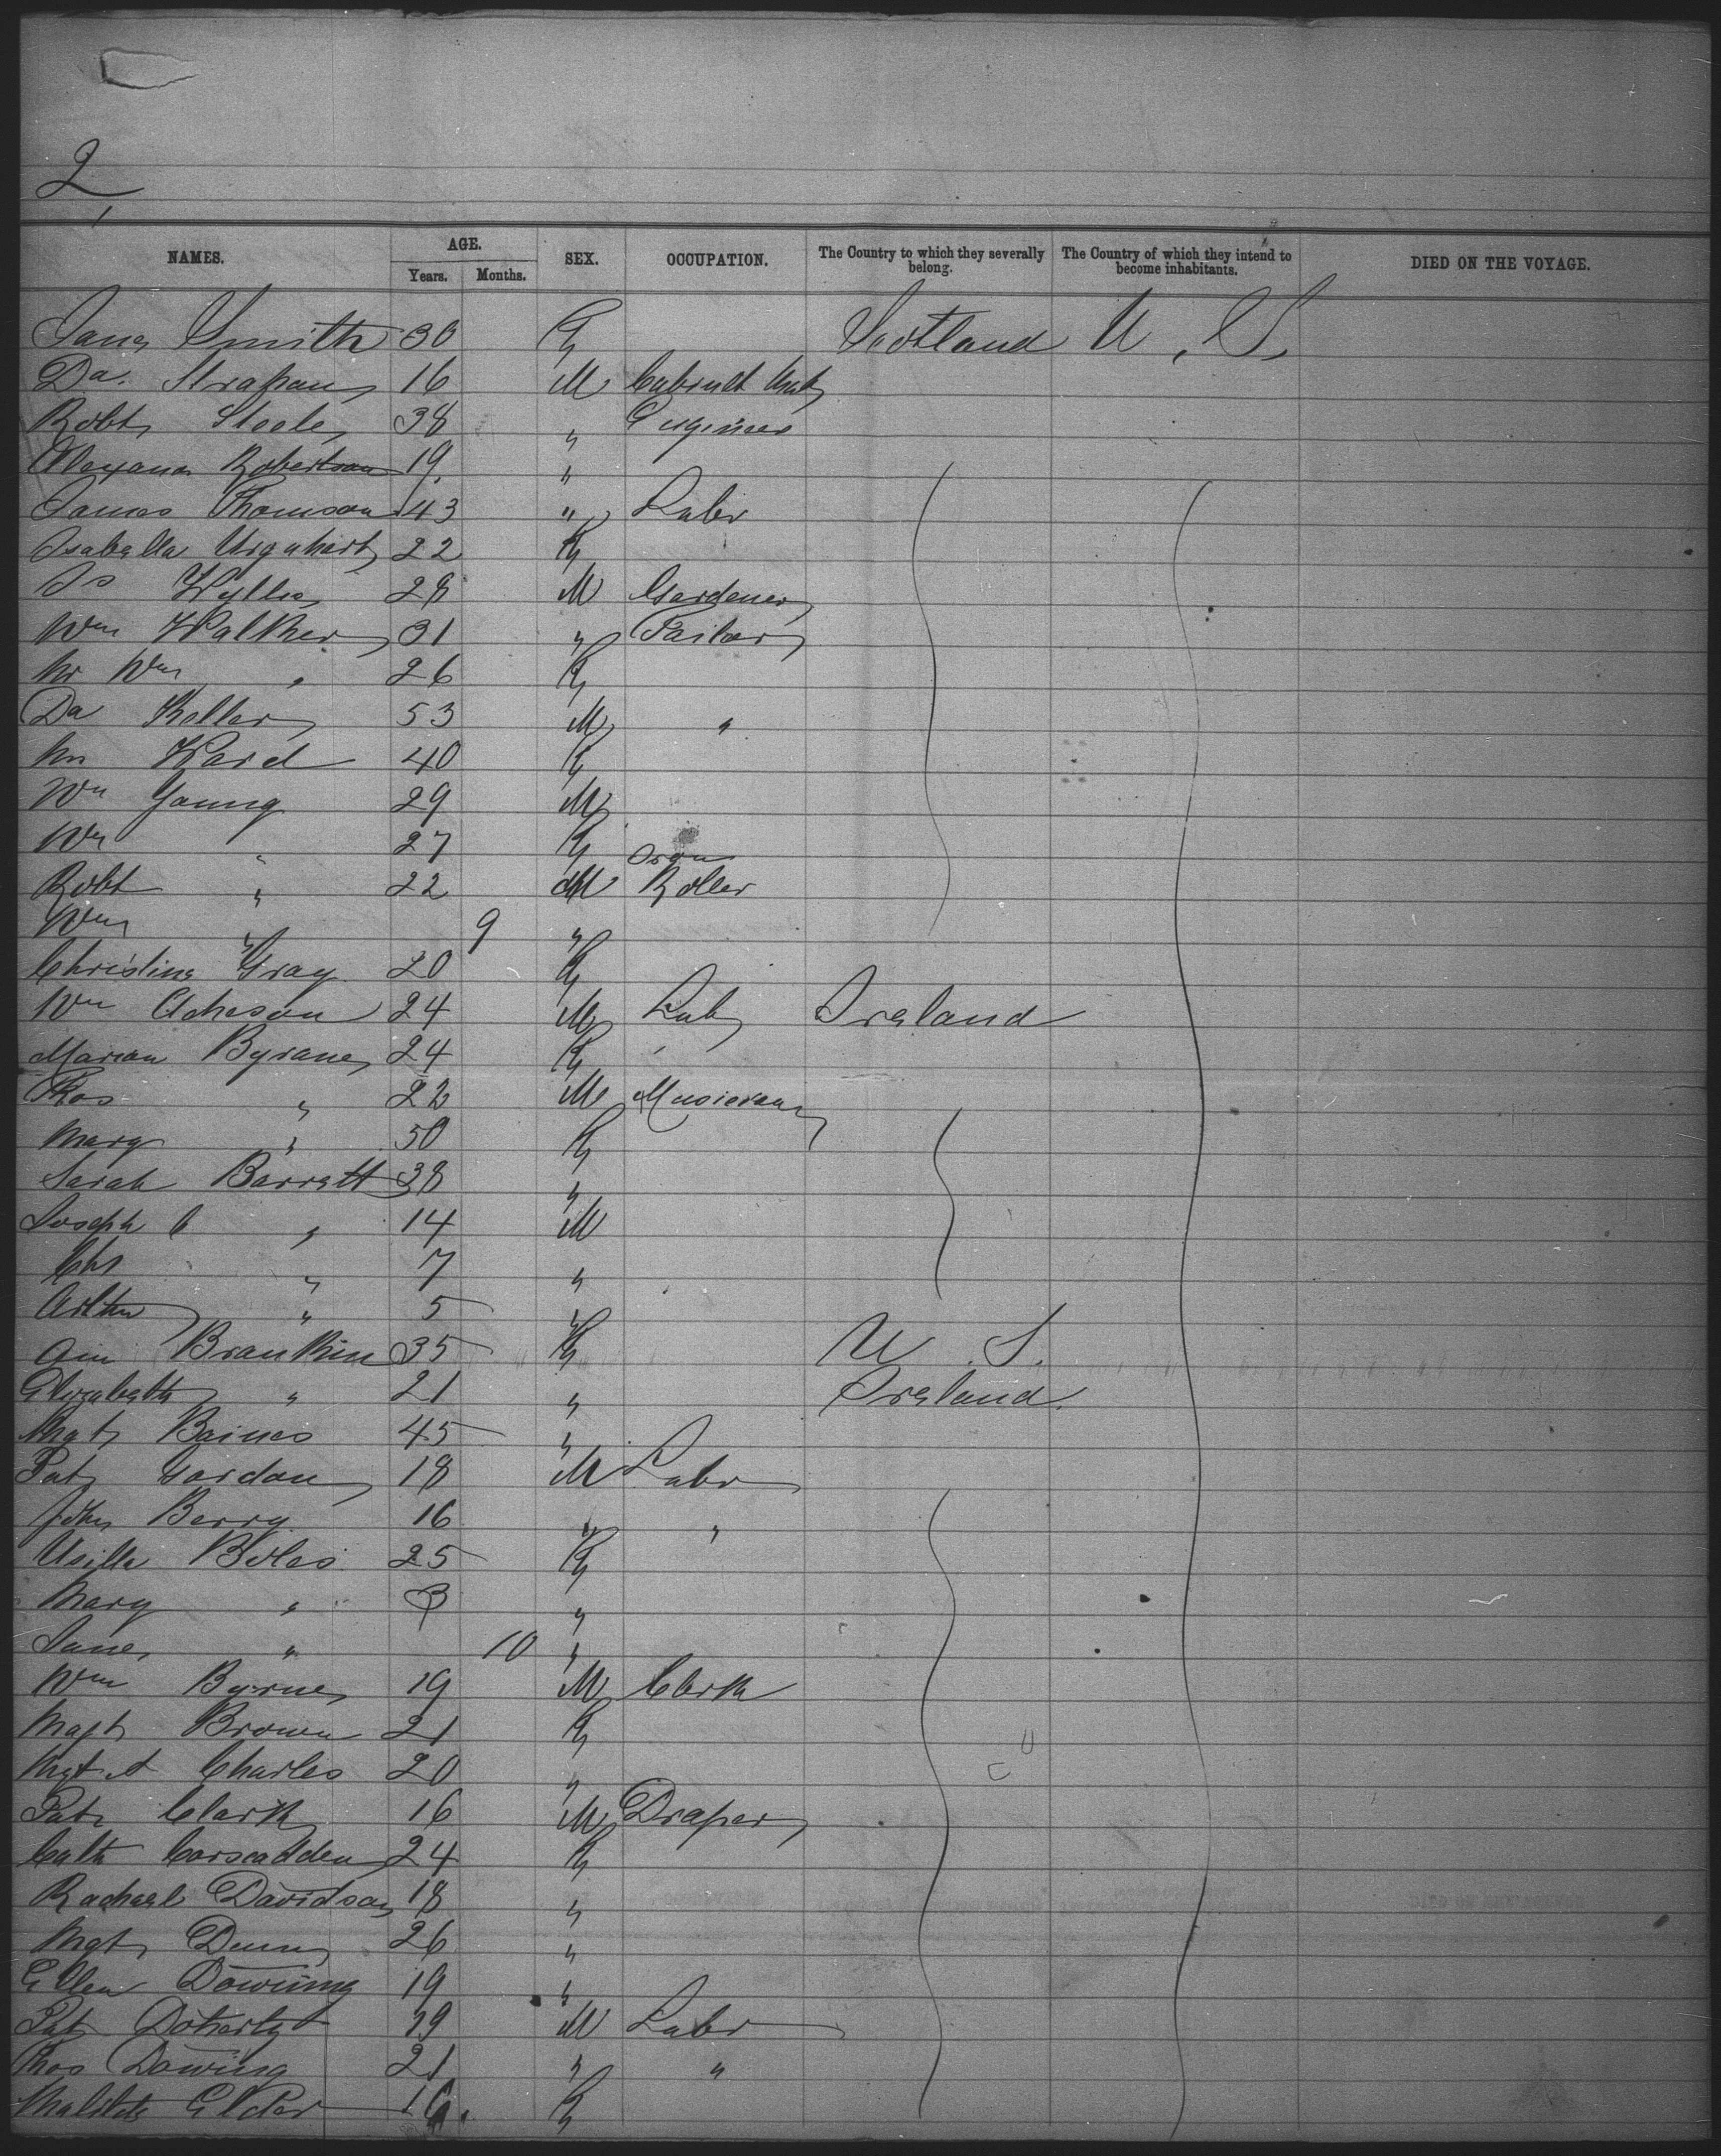 2
NAMES. AGE. SEX. OCCUPATION. The Country to which they severally belong. The Country of which they intend to become inhabitants. DIED ON THE VOYAGE.
Years. Months.
Jane Smith 30 F Scotland U. S.
Da. Strapan 16 M Cabinet Mak
Robt Steele 38 " Engineer
Robertson 19 "
James Thomson 43 " Labr
Isabella Urquhart 22 F
Js Wyllie 28 M Gardener
Wm Walker 31 " Tailor
Mr Wm " 26 F
Da Keller 53 M "
Mrs Ward 40 F
Wm Young 29 M
Wm " 27 F
Robt " 22 M Iron Roller
Wm " 9 "
Christina Gray 20 F
Wm Acheson 24 M Lab Ireland
Marian Byrane 24 F
Thos " 22 M Musician
Mary " 50 F
Sarah Barrett 38 "
Joseph C " 14 M
Chs " 7 "
Arthur " 5 "
Ann Brankin 35 F U. S.
Elizabeth " 21 " Ireland
Mgt Baines 45 "
Pat Gordon 18 M Labr
John Berry 16 " "
Boles 25 F
Mary " 3 "
Jane " 10 "
Wm Byrne 19 M Clerk
Magt Brown 21 F
Mgt A Charles 20 "
Pat Clark 16 M Draper
Cath Corscadden 24 F
Rachael Davidson 18 "
Mgt Dunn 26 "
Ellen Downing 19 "
Pat Doherty 19 M Labr
Thos Dowing 21 " "
Matilda Elder F